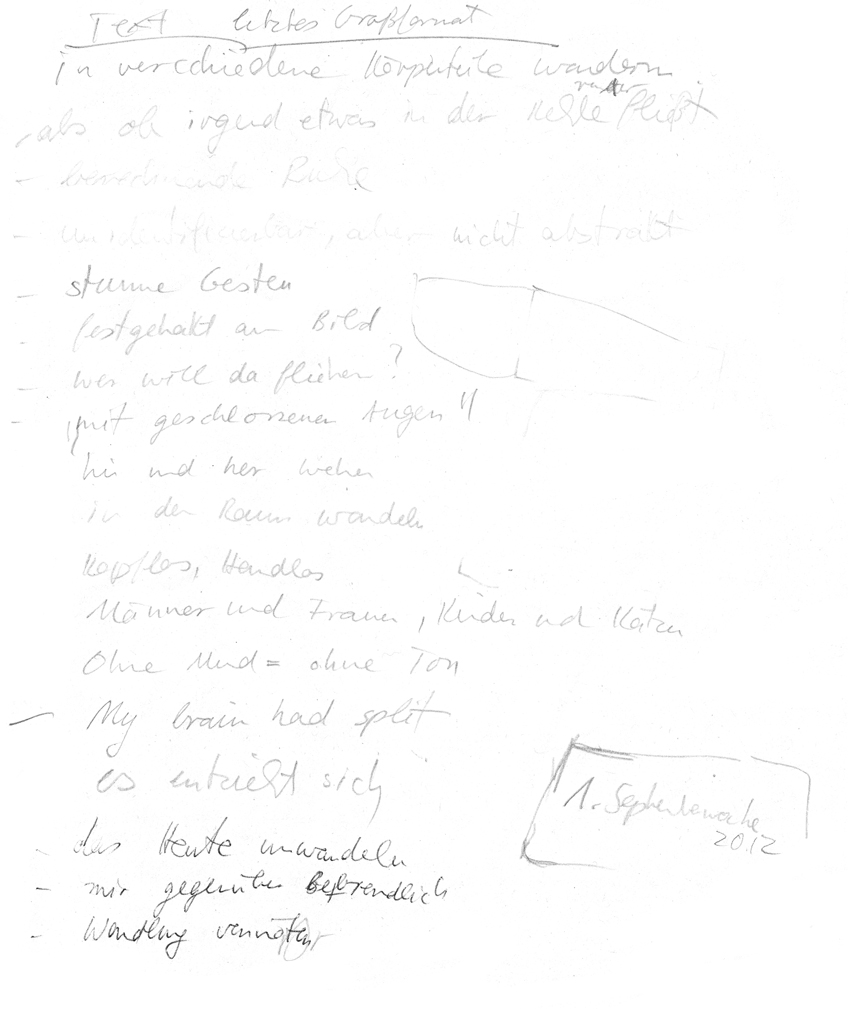 Text letztes Großformat
in verschiedene Körperteile wandern
- als ob irgend etwas in der Kehle runter fließt
- Ruhe
- unidentifizierbar, aber nicht abstrakt
- stumme Gesten
- festgehakt am Bild
- wer will da fliehen?
- "mit geschlossenen Augen"
hin und her wehen
in den Raum wandeln
Kopflos, Handlos
Männer und Frauen, Kinder und Katzen
Ohne Mund = ohne Ton
- My brain had split
es entzieht sich
- das Heute umwandeln
- mir gegenüber Befremdlich
- Wandlung
1. Septemberwoche
2012